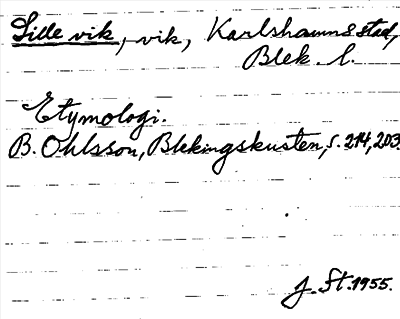 Lille vik, vik, Karlshamns stad,
Blek. l.
Etymologi.
B. Ohlsson, Blekingskusten, s. 214, 203.
J. St. 1955.